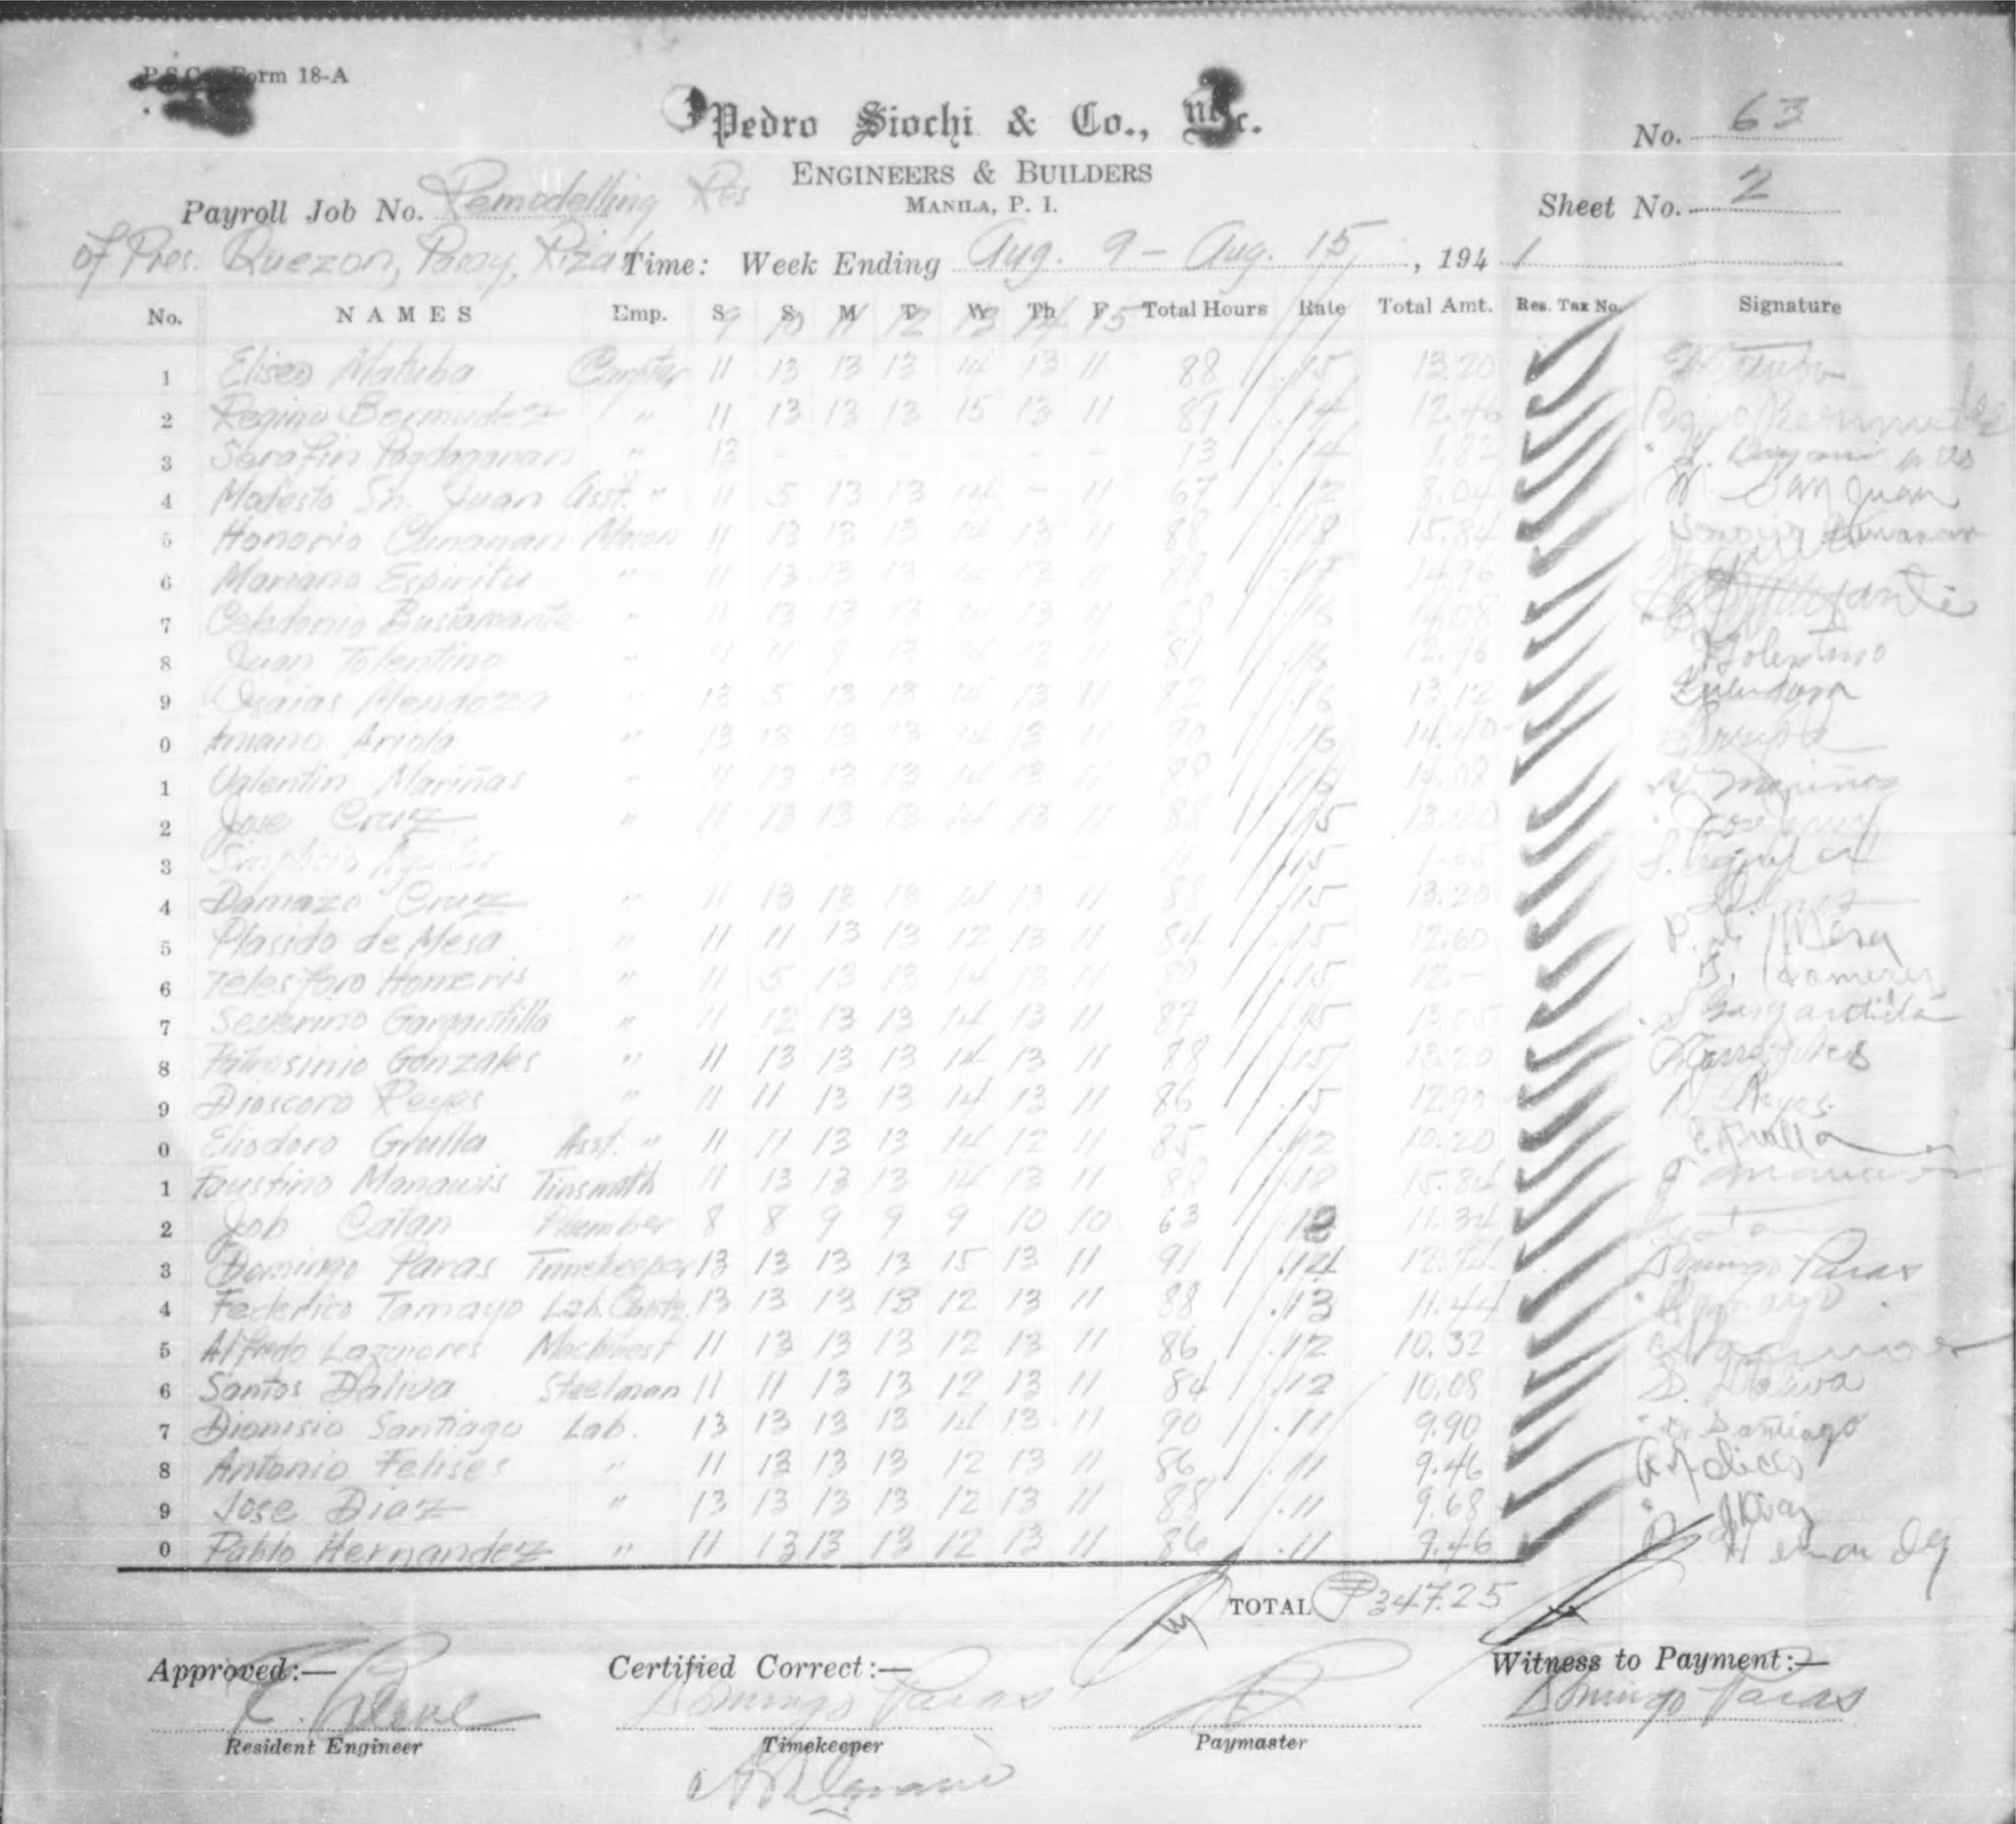 P.S.C. Form 18-A
Pedro Siochi & Co., Inc.
No. 63
ENGINEERS & BUILDERS
MANILA, P. I.
Sheet No. 2
Payroll Job No. Remodelling Res
of Pres. Quezon, Pasay, Rizal Time: Week Ending Aug. 9 - Aug. 15, 1941
No. NAMES Emp. S S M T W Th F Total Hours Rate Total Amt. Res. Tax No. Signature
9 10 11 12 13 14 15
1 Eliseo Matuba 11 13 13 13 14 13 11 88 .15 13.20
2 Regino Bermudez " 11 13 13 13 15 13 11 89 .14 12.46
3 Serafin " 13 - - - - - - 13 .14 1.82
4 Modesto Sn. Juan Asst. " 11 5 13 13 14 - 11 67 .12 8.04 M. San Juan
5 Honorio Cunanan Mason 11 13 13 13 14 13 11 88 .18 15.84
6 Mariano Espiritu " 11 13 13 13 14 13 11 88 .17 14.96
7 Celedonio Bustamante " 11 13 13 13 14 13 11 88 .16 14.08
8 Juan Tolentino " 13 13 11 81 .16 12.96 Tolentino
9 Isaias Mendoza " 13 5 13 13 14 13 11 82 .16 13.12
0 Amano Arriola " 13 13 13 13 14 13 11 90 .16 14.40
1 Valentin Mariñas " 11 13 13 13 14 13 11 88 .16 14.08 V. Mariñas
2 Jose Cruz " 11 13 13 13 14 13 11 88 .15 13.20 Jose Cruz
3 Simplicio .15
4 Damazo Cruz " 11 13 13 13 14 13 11 88 .15 13.20
5 Plasido de Mesa " 11 11 13 13 12 13 11 84 .15 12.60 P. de Mesa
6 Telesforo Homeris " 11 5 13 13 14 13 11 80 .15 12.-
7 Severino Gargantilla " 11 12 13 13 14 13 11 87 .15 13.05 S Gargantilla
8 Patrosinio Gonzales " 11 13 13 13 14 13 11 88 .15 13.20
9 Dioscoro Reyes " 11 11 13 13 14 13 11 86 .15 12.90 D Reyes
0 Eliodoro Grulla Asst. " 11 11 13 13 14 12 11 85 .12 10.20 E Grulla
1 Faustino Manawis Tinsmith 11 13 13 13 14 13 11 88 .18 15.84
2 Job Catan Plumber 8 8 9 9 9 10 10 63 .18 11.34
3 Domingo Paras Timekeeper 13 13 13 13 15 13 11 91 .14 12.74 Domingo Paras
4 Federico Tamayo Lab. 13 13 13 13 12 13 11 88 .13 11.44
5 Alfredo Machinest 11 13 13 13 12 13 11 86 .12 10.32
6 Santos Daliva Steelman 11 11 13 13 12 13 11 84 .12 10.08 S. Daliva
7 Dionisio Santiago Lab. 13 13 13 13 14 13 11 90 .11 9.90 D. Santiago
8 Antonio Felises " 11 13 13 13 12 13 11 86 .11 9.46
9 Jose Diaz " 13 13 13 13 12 13 11 88 .11 9.68 J Diaz
0 Pablo Hernandez " 11 13 13 13 12 13 11 86 .11 9.46
TOTAL ₱347.25
Approved:— Certified Correct:— Witness to Payment:—
Domingo Paras Domingo Paras
Resident Engineer Timekeeper Paymaster